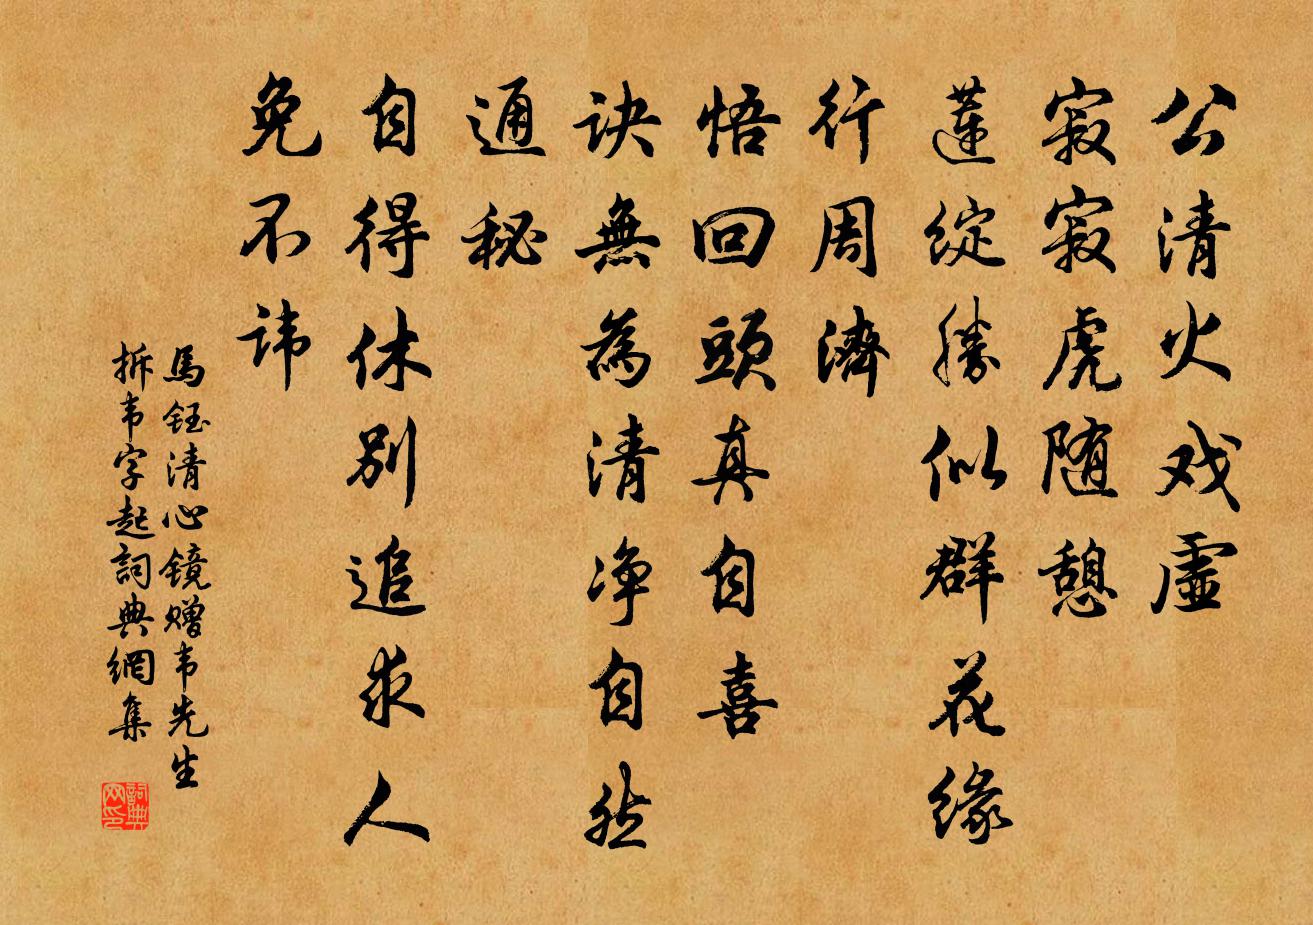 公清火戏虚
寂寂虎随憩
莲綻勝似群花缘
行周濟
悟回頭真自喜
诀無為清净自然
通秘
自得休别追求人
免不讳
馬钰清心镜赠韦先生
拆韦字起詞典網集
詞典网印